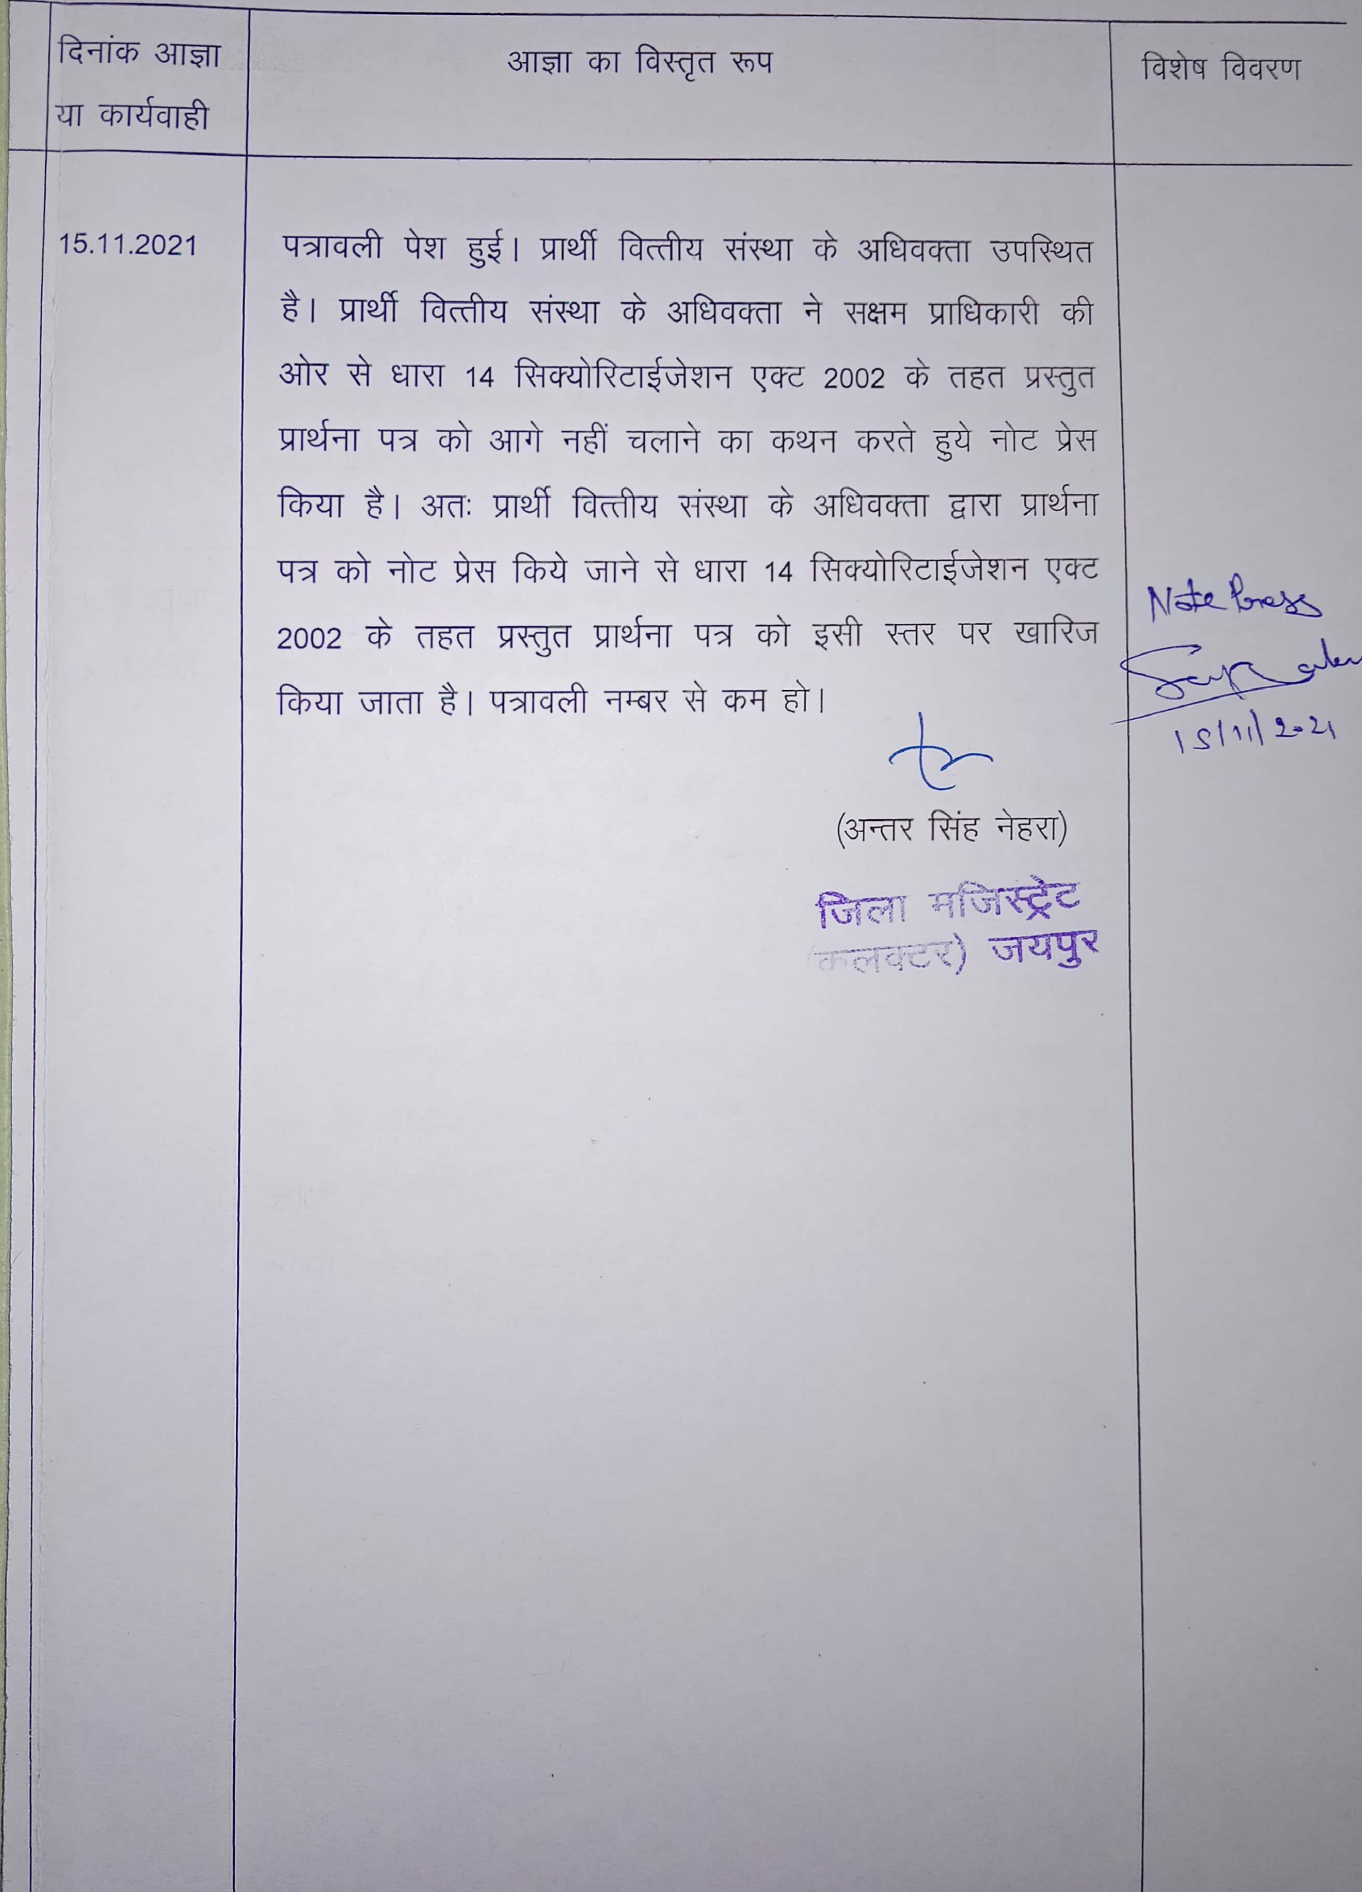 दिनांक आज्ञा
या कार्यवाही
आज्ञा का विस्तृत रूप
विशेष विवरण
15.11.2021
पत्रावली पेश हुई। प्रार्थी वित्तीय संस्था के अधिवक्ता उपस्थित
है। प्रार्थी वित्तीय संस्था के अधिवक्ता ने सक्षम प्राधिकारी की
ओर से धारा 14 सिक्योरिटाईजेशन एक्ट 2002 के तहत प्रस्तुत
प्रार्थना पत्र को आगे नहीं चलाने का कथन करते हुये नोट प्रेस
किया है। अतः प्रार्थी वित्तीय संस्था के अधिवक्ता द्वारा प्रार्थना
पत्र को नोट प्रेस किये जाने से धारा 14 सिक्योरिटाईजेशन एक्ट
2002 के तहत प्रस्तुत प्रार्थना पत्र को इसी स्तर पर खारिज
किया जाता है। पत्रावली नम्बर से कम हो।
(अन्तर सिंह नेहरा)
जिला मजिस्ट्रेट
(कलक्टर) जयपुर
Note Press
15/11/2021